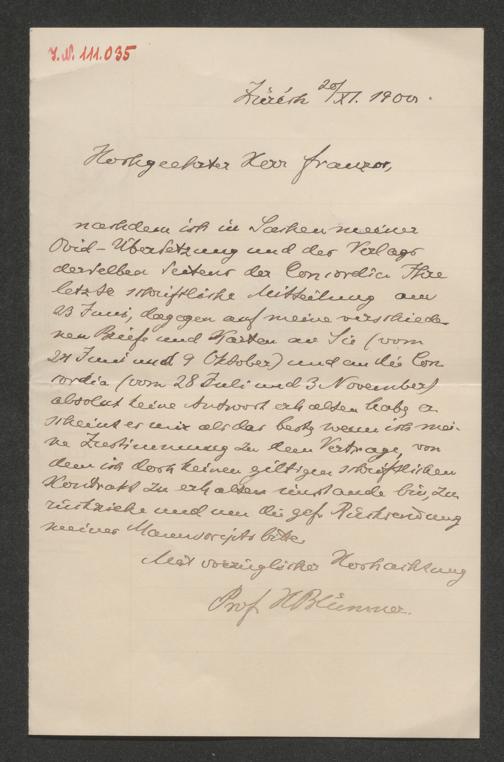 J.N. 111.035
Zürich 20/XI. 1900.
Hochgeehrter Herr Franzos,
nachdem ich in Sachen meiner
Ovid-Übersetzung und des Verlags
derselben Seitens der Concordia Ihre
letzte schriftliche Mitteilung am
23 Juni, dagegen auf meine verschiede-
nen Briefe und Karten an Sie (vom
24 Juni und 9 Oktober) und an die Con-
cordia (vom 28 Juli und 3 November)
absolut keine Antwort erhalten habe,
scheint es mir als das beste, wenn ich mei-
ne Zustimmung zu dem Vertrage, von
dem ich doch keinen giltigen schriftlichen
Kontrakt zu erhalten imstande bin, zu-
rückziehe und um die gef. Rücksendung
meines Manuscripts bitte.
Mit vorzüglicher Hochachtung
Prof. H Blümner.